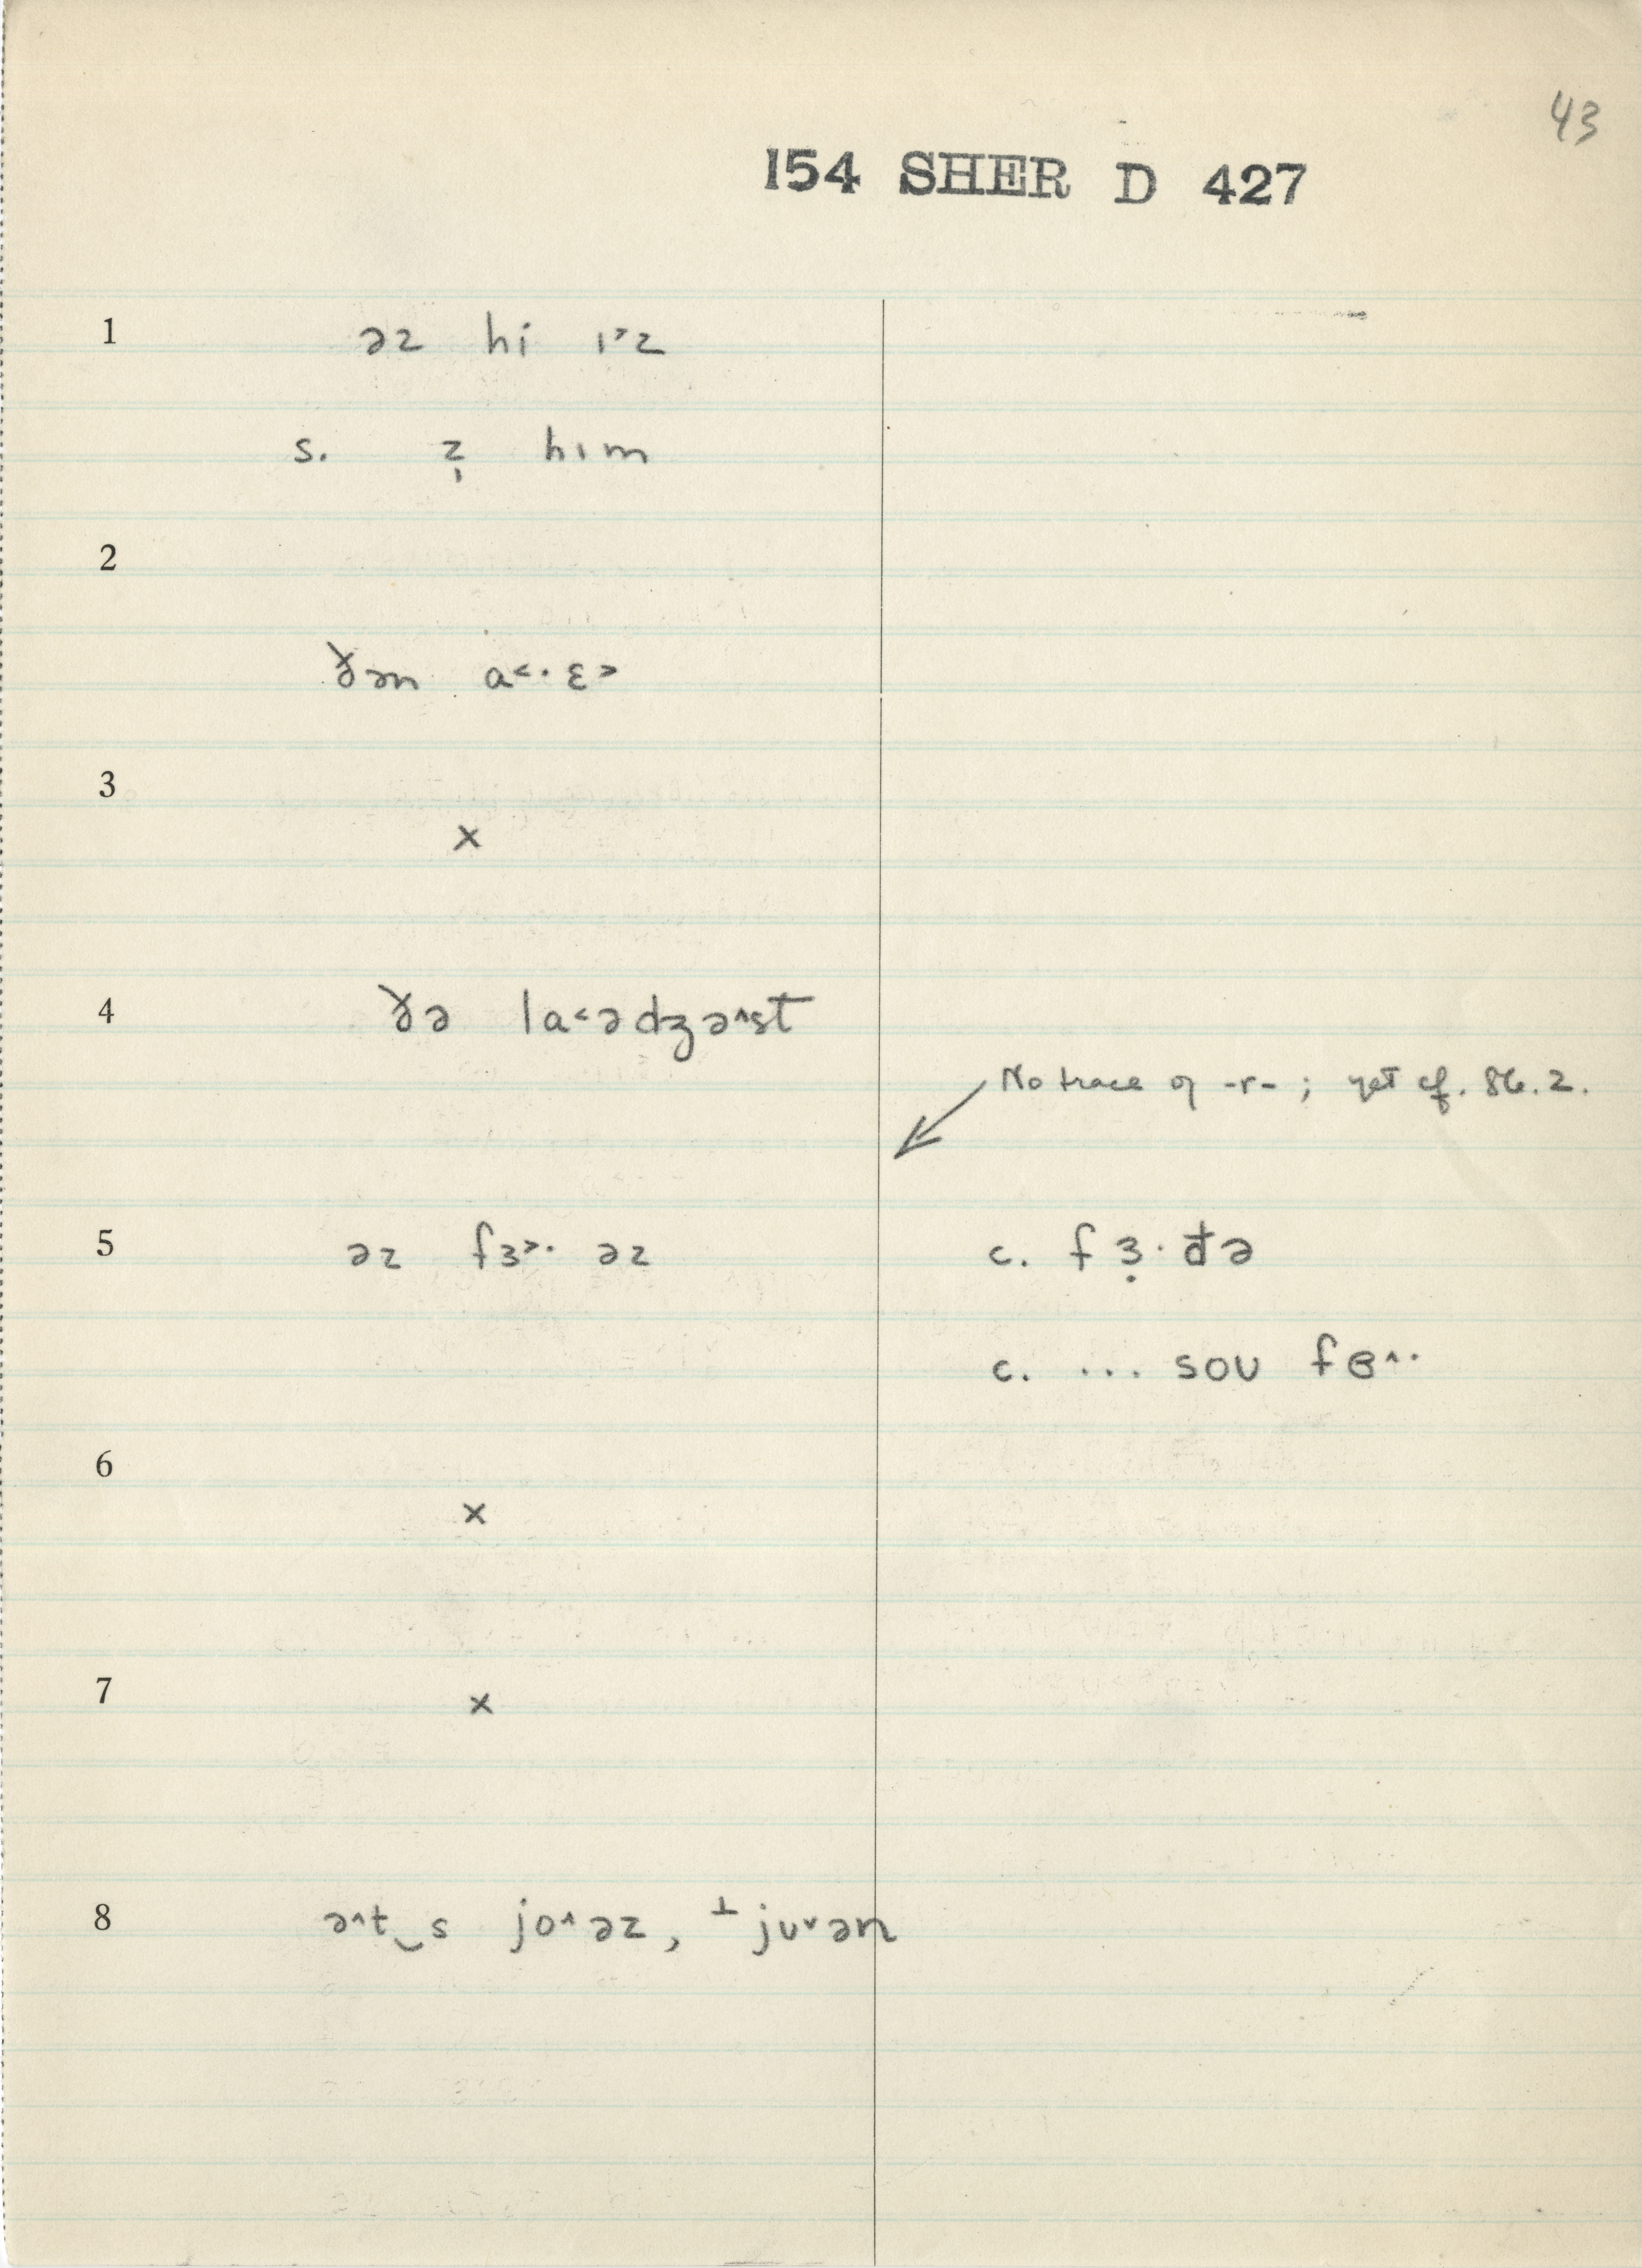 43
154 SHER D 427
1 əz hi ɪ˃z
s. z̩ hɪm
2
ðən a˂·ɛ˃
3
×
4 ðə la˂ədʒə˄st
No trace of -r-; yet cf. 86.2.
5 əz fɜ˃· əz c. fɜ̣·đə
c. ... soʊ fɞ˄·
6
×
7
×
8 ə˄t‿s jo˄əz, ⊥jʊ˅ən